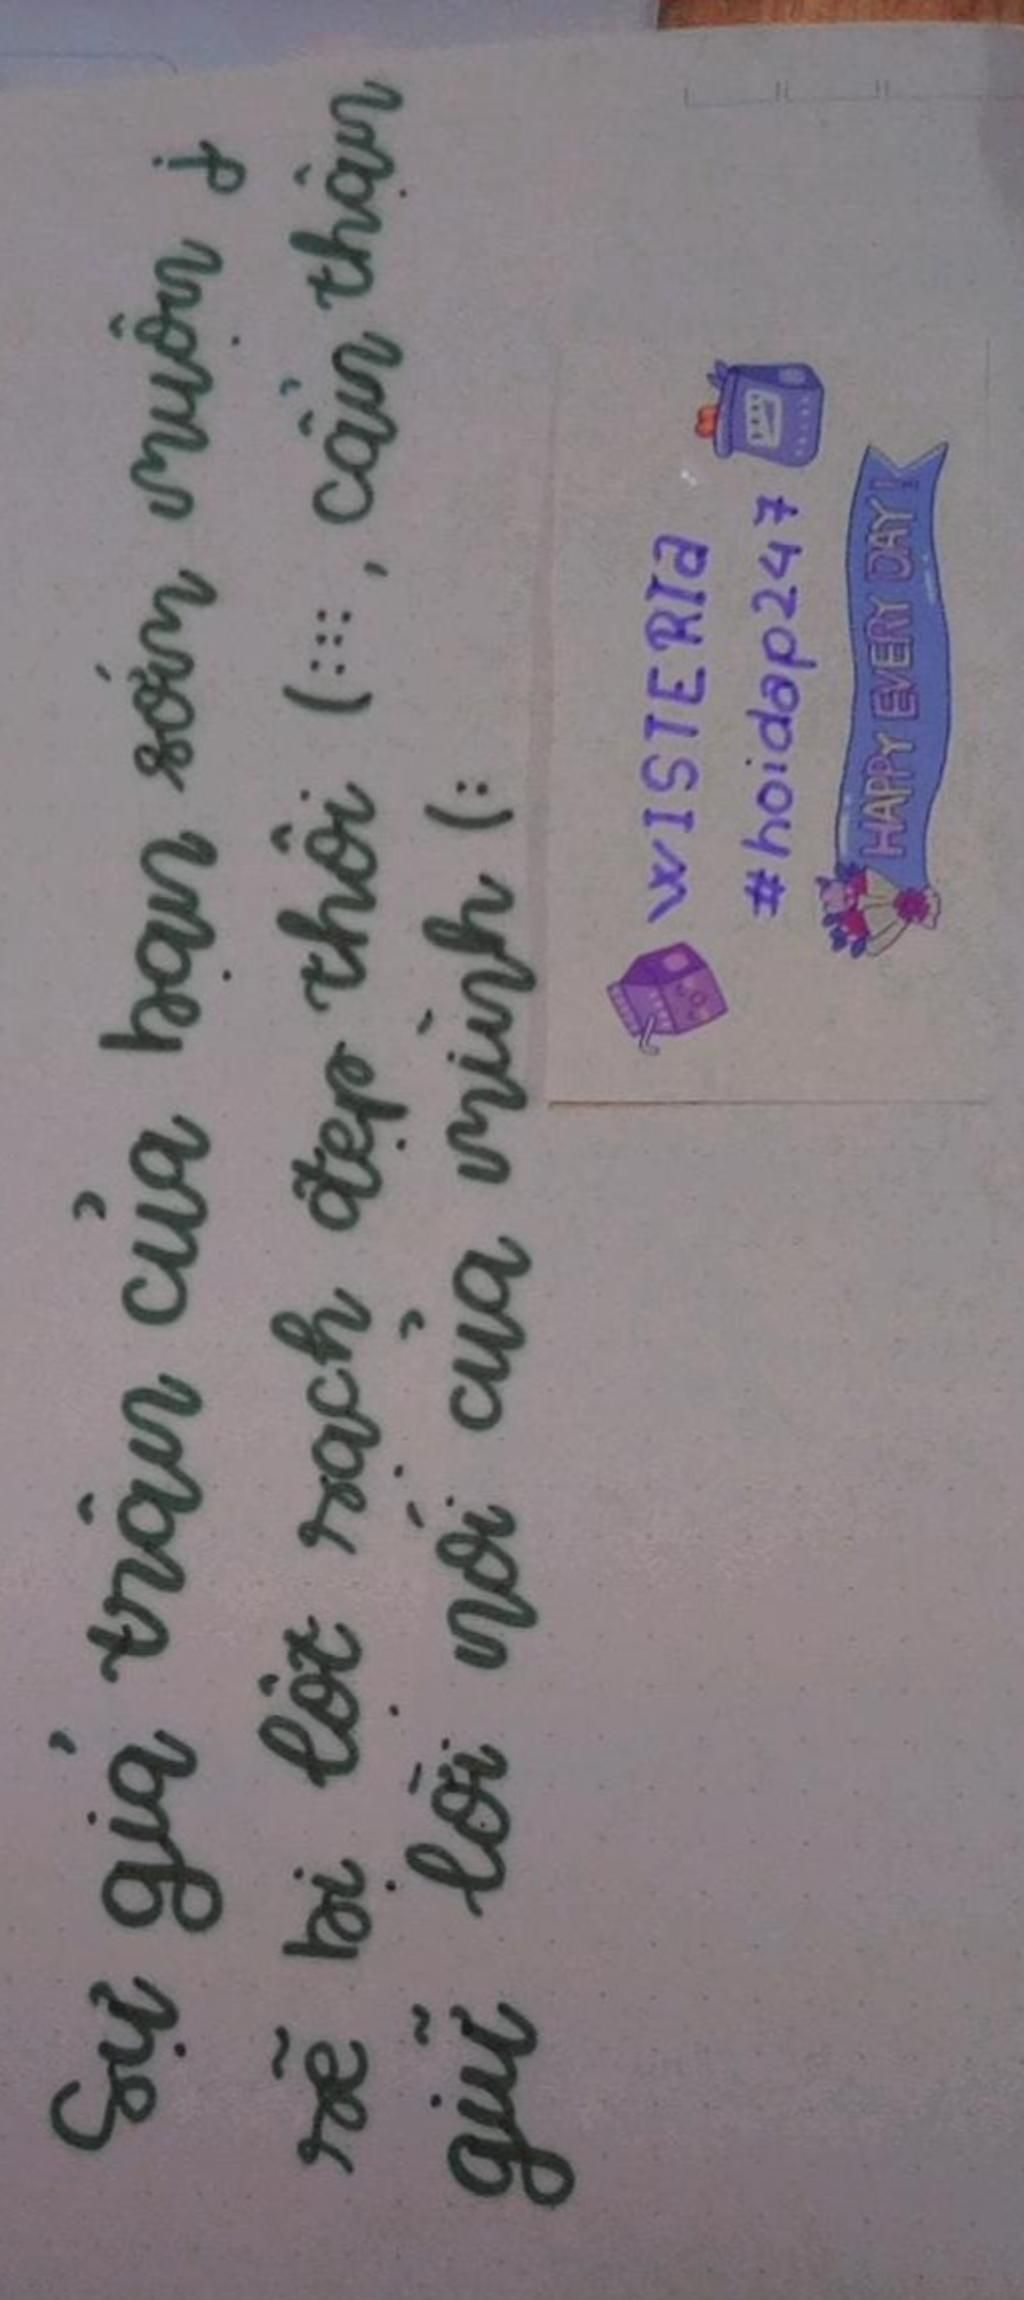 Sự giả trân của bạn sớm muộn j
rẽ bị lột rạch đẹp thôi (:::, cẩn thận
giữ lời nói của mình (:
WISTERIA
#hoidap247
HAPPY EVERY DAY!